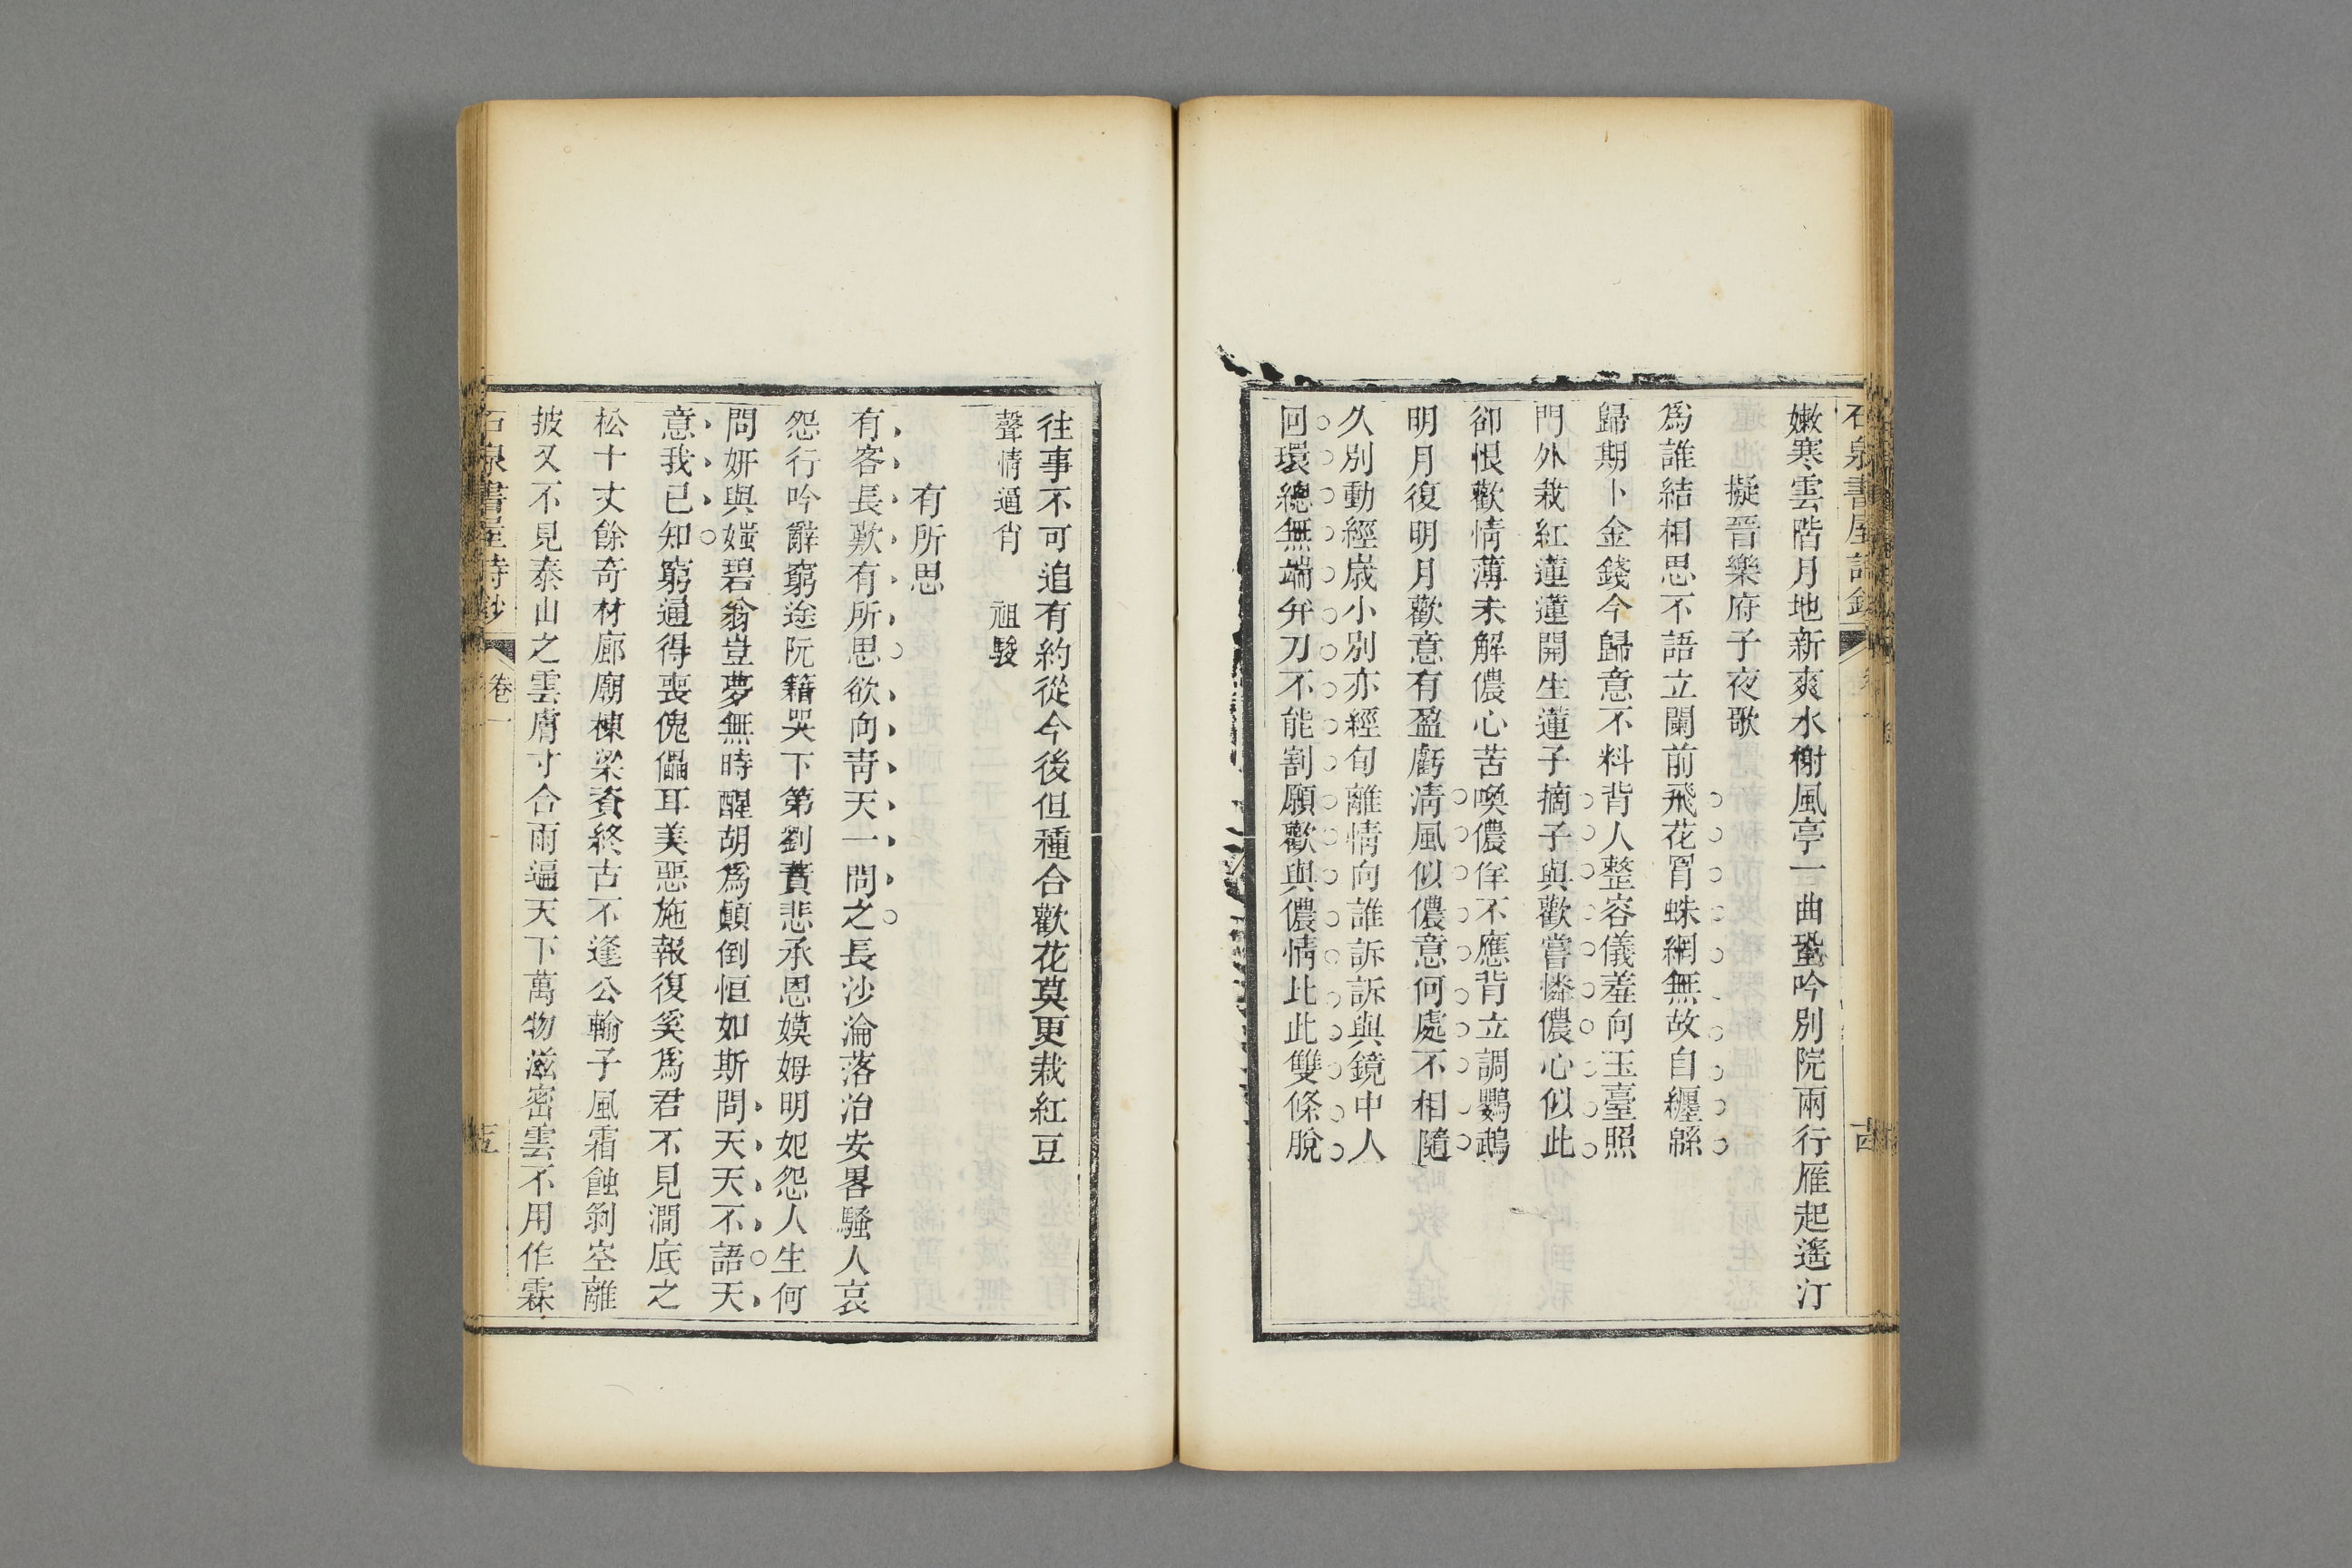 嫩寒雲階月地新爽水榭風亭一曲蛩吟別院兩行雁起遙汀
擬晉樂府子夜歌
爲誰結相思不語立闌前飛花罥蛛網無故自纏緜
歸期卜金錢今歸意不料背人整容儀羞向玉臺照
門外栽紅蓮蓮開生蓮子摘子與歡嘗憐儂心似此
卻恨歡情薄未解儂心苦喚儂佯不應背立調鸚鵡
明月復明月歡意有盈虧淸風似儂意何處不相隨
久別動經歲小別亦經旬離情向誰訴訴與鏡中人
回環總無端弁刀不能割願歡與儂情比此雙條脫
往事不可追有約從今後但種合歡花莫更栽紅豆
聲情逼肖 祖駿
有所思
有客長歎有所思欲向靑天一問之長沙淪落治安畧騷人哀
怨行吟辭窮途阮籍哭下第劉蕡悲承恩嫫姆明妃怨人生何
問姸與媸碧翁豈夢無時醒胡爲顚倒恒如斯問天天不語天
意我已知窮通得喪傀儡耳美惡施報復奚爲君不見澗底之
松十丈餘奇材廊廟棟梁資終古不逢公輸子風霜蝕剝空離
披又不見泰山之雲膚寸合雨遍天下萬物滋密雲不用作霖
石泉書屋詩鈔 卷一